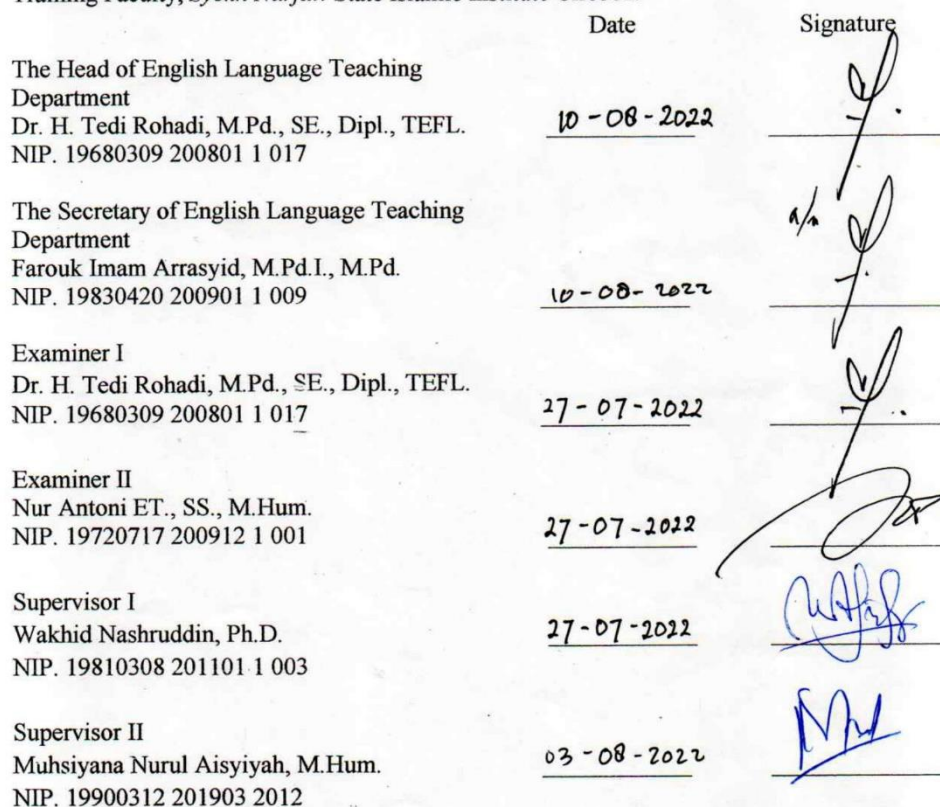 Date Signature
The Head of English Language Teaching
Department
Dr. H. Tedi Rohadi, M.Pd., SE., Dipl., TEFL.
NIP. 19680309 200801 1 017
10 - 08 - 2022
The Secretary of English Language Teaching
Department
a/n
Farouk Imam Arrasyid, M.Pd.I., M.Pd.
NIP. 19830420 200901 1 009
10 - 08 - 2022
Examiner I
Dr. H. Tedi Rohadi, M.Pd., SE., Dipl., TEFL.
NIP. 19680309 200801 1 017
27 - 07 - 2022
Examiner II
Nur Antoni ET., SS., M.Hum.
NIP. 19720717 200912 1 001
27 - 07 - 2022
Supervisor I
Wakhid Nashruddin, Ph.D.
NIP. 19810308 201101 1 003
27 - 07 - 2022
Supervisor II
Muhsiyana Nurul Aisyiyah, M.Hum.
NIP. 19900312 201903 2012
03 - 08 - 2022